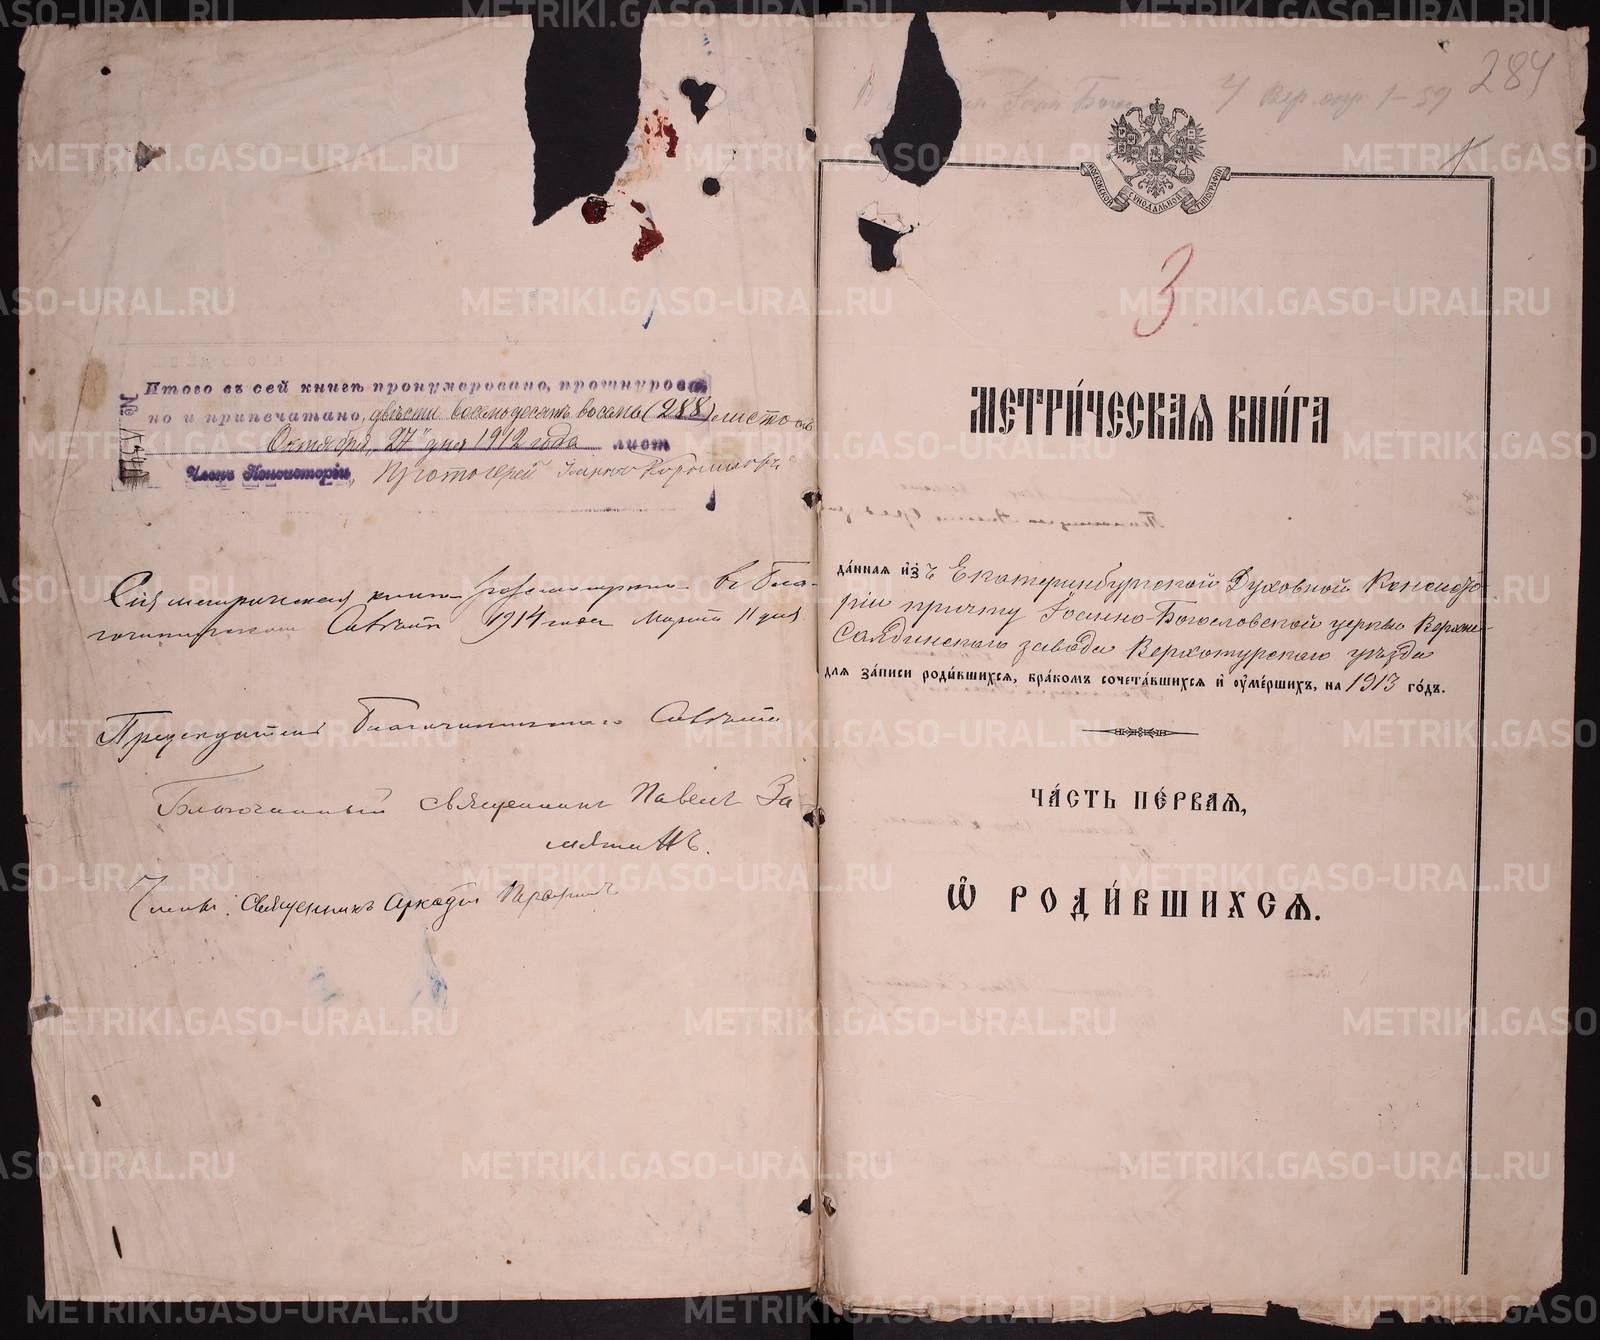 Итого въ сей книгѣ пронумеровано, прошнурова
но и припечатано, двѣсти восемьдесятъ восемь (288) листовъ
Октября „27" дня 1912 года лист
Членъ Консисторіи, Протоіерей
Сія метрическая книга въ Бла-
гочинническомъ Совѣтѣ 1914 года Марта 11 дня
Предсѣдатель Благочинническаго Совѣта
Благочинный священникъ Павелъ За
Члены: Священникъ Аркадій
284
1-59
МОСКОВСКОЙ СѴНОДАЛЬНОЙ ТИПОГРАФІИ
3.
МЕТРИ́ЧЕСКАѦ КНИ́ГА
да́ннаѧ и҆зъ Екатеринбургской Духовной Консисто-
ріи причту Іоанно-Богословской церкви Верхне-
Салдинскаго завода Верхотурскаго уѣзда
для за́писи роди́вшихсѧ, бра́комъ сочета́вшихсѧ и҆ ᲂу҆ме́ршихъ, на 1913 го́дъ.
ЧА́СТЬ ПЕ́РВАѦ,
Ѽ РОДИ́ВШИХСѦ.
METRIKI.GASO-URAL.RU